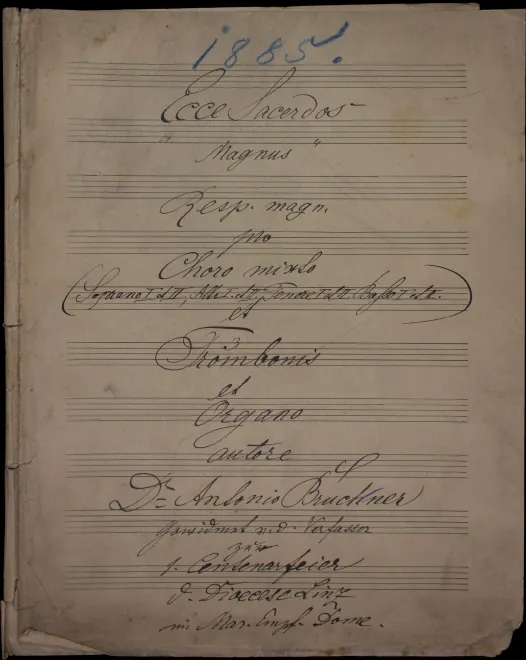 1885.
Ecce Sacerdos
Magnus"
Resp. magn.
pro
Choro mixto
(Soprano I et II, Alt I. et II, Tenore I et II Basso I et II.)
et
3
Trombonis
et
Organo
autore
Dr. Antonio Bruckner
Gewidmet v. d. Verfasser
zur
1. Centenarfeier
d. Dioecese Linz
im Mar. Empf. Dome.